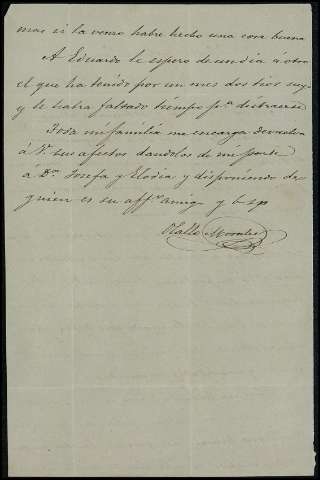 mas si la venzo habre hecho una cosa buena
A Eduardo le espero de un dia á otro
el que ha tenido por un mes dos tios suyos
y le habra faltado tiempo pª distraerse
Toda mi familia me encarga devuelva
á V. sus afectos dandolos de mi parte
á Dª Josefa y Elodia y disponiendo de
quien es su affmo amigo y b sp
Morales